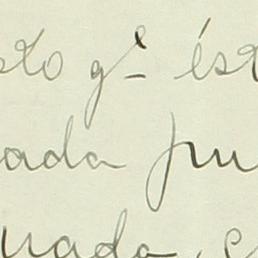 sto ge ést
ada pu
uada, e